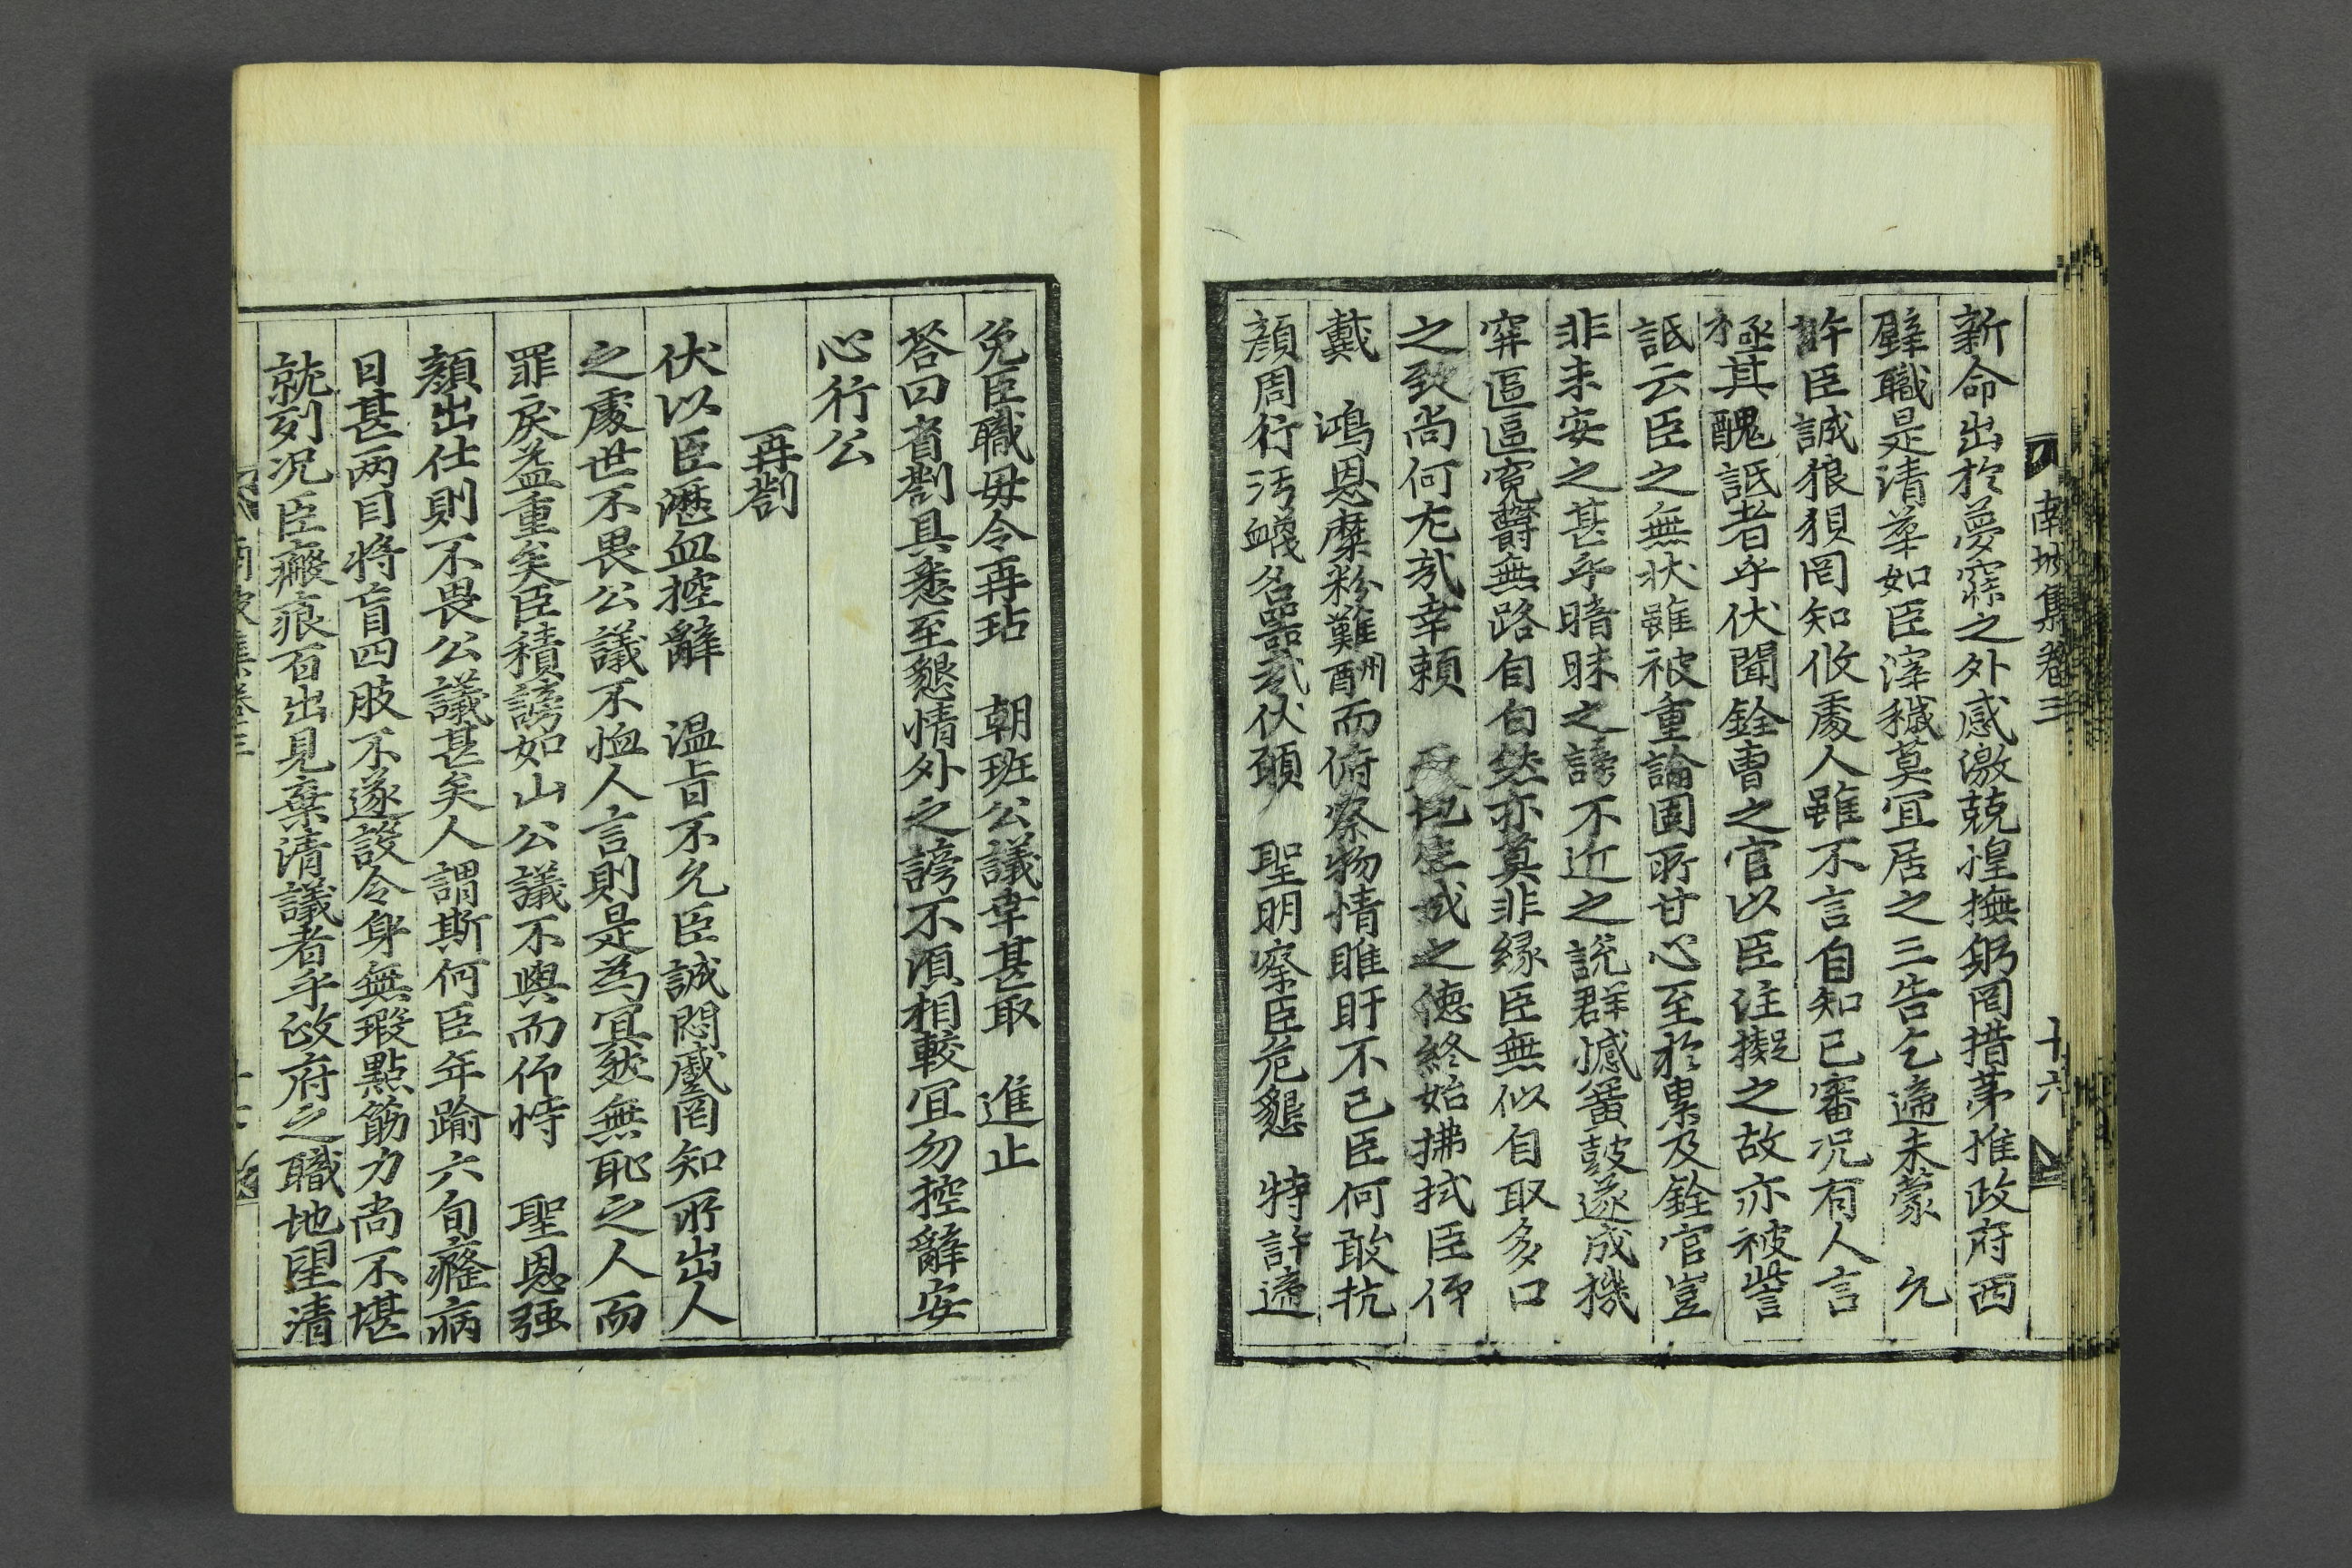 南坡集卷三 十六
新命出於夢寐之外感激兢惶撫躬罔措第惟政府西
壁職是清華如臣滓穢莫宜居之三告乞遞未蒙 允
許臣誠狼狽罔知攸處人雖不言自知已審况有人言
極其醜詆者乎伏聞銓曹之官以臣注擬之故亦被訾
詆云臣之無狀雖被重論固所甘心至於累及銓官豈
非未安之甚乎暗昧之謗不近之說群憾簧鼓遂成機
穽區區寃欝無路自白然亦莫非緣臣無似自取多口
之致尚何尤哉幸賴 天地生成之德終始拂拭臣仰
戴 鴻恩糜粉難酬而俯察物情睢盱不已臣何敢抗
顔周行汚衊名器哉伏願 聖明察臣危懇 特許遞
免臣職毋令再玷 朝班公議幸甚取 進止
答曰省劄具悉至懇情外之謗不須相較宜勿控辭安
心行公
再劄
伏以臣瀝血控辭 温旨不允臣誠悶蹙罔知所出人
之處世不畏公議不恤人言則是爲冥然無恥之人而
罪戾益重矣臣積謗如山公議不與而仰恃 聖恩强
顔出仕則不畏公議甚矣人謂斯何臣年踰六旬癃病
日甚兩目將盲四肢不遂設令身無瑕點筋力尚不堪
就列况臣瘢痕百出見棄清議者乎政府之職地望清